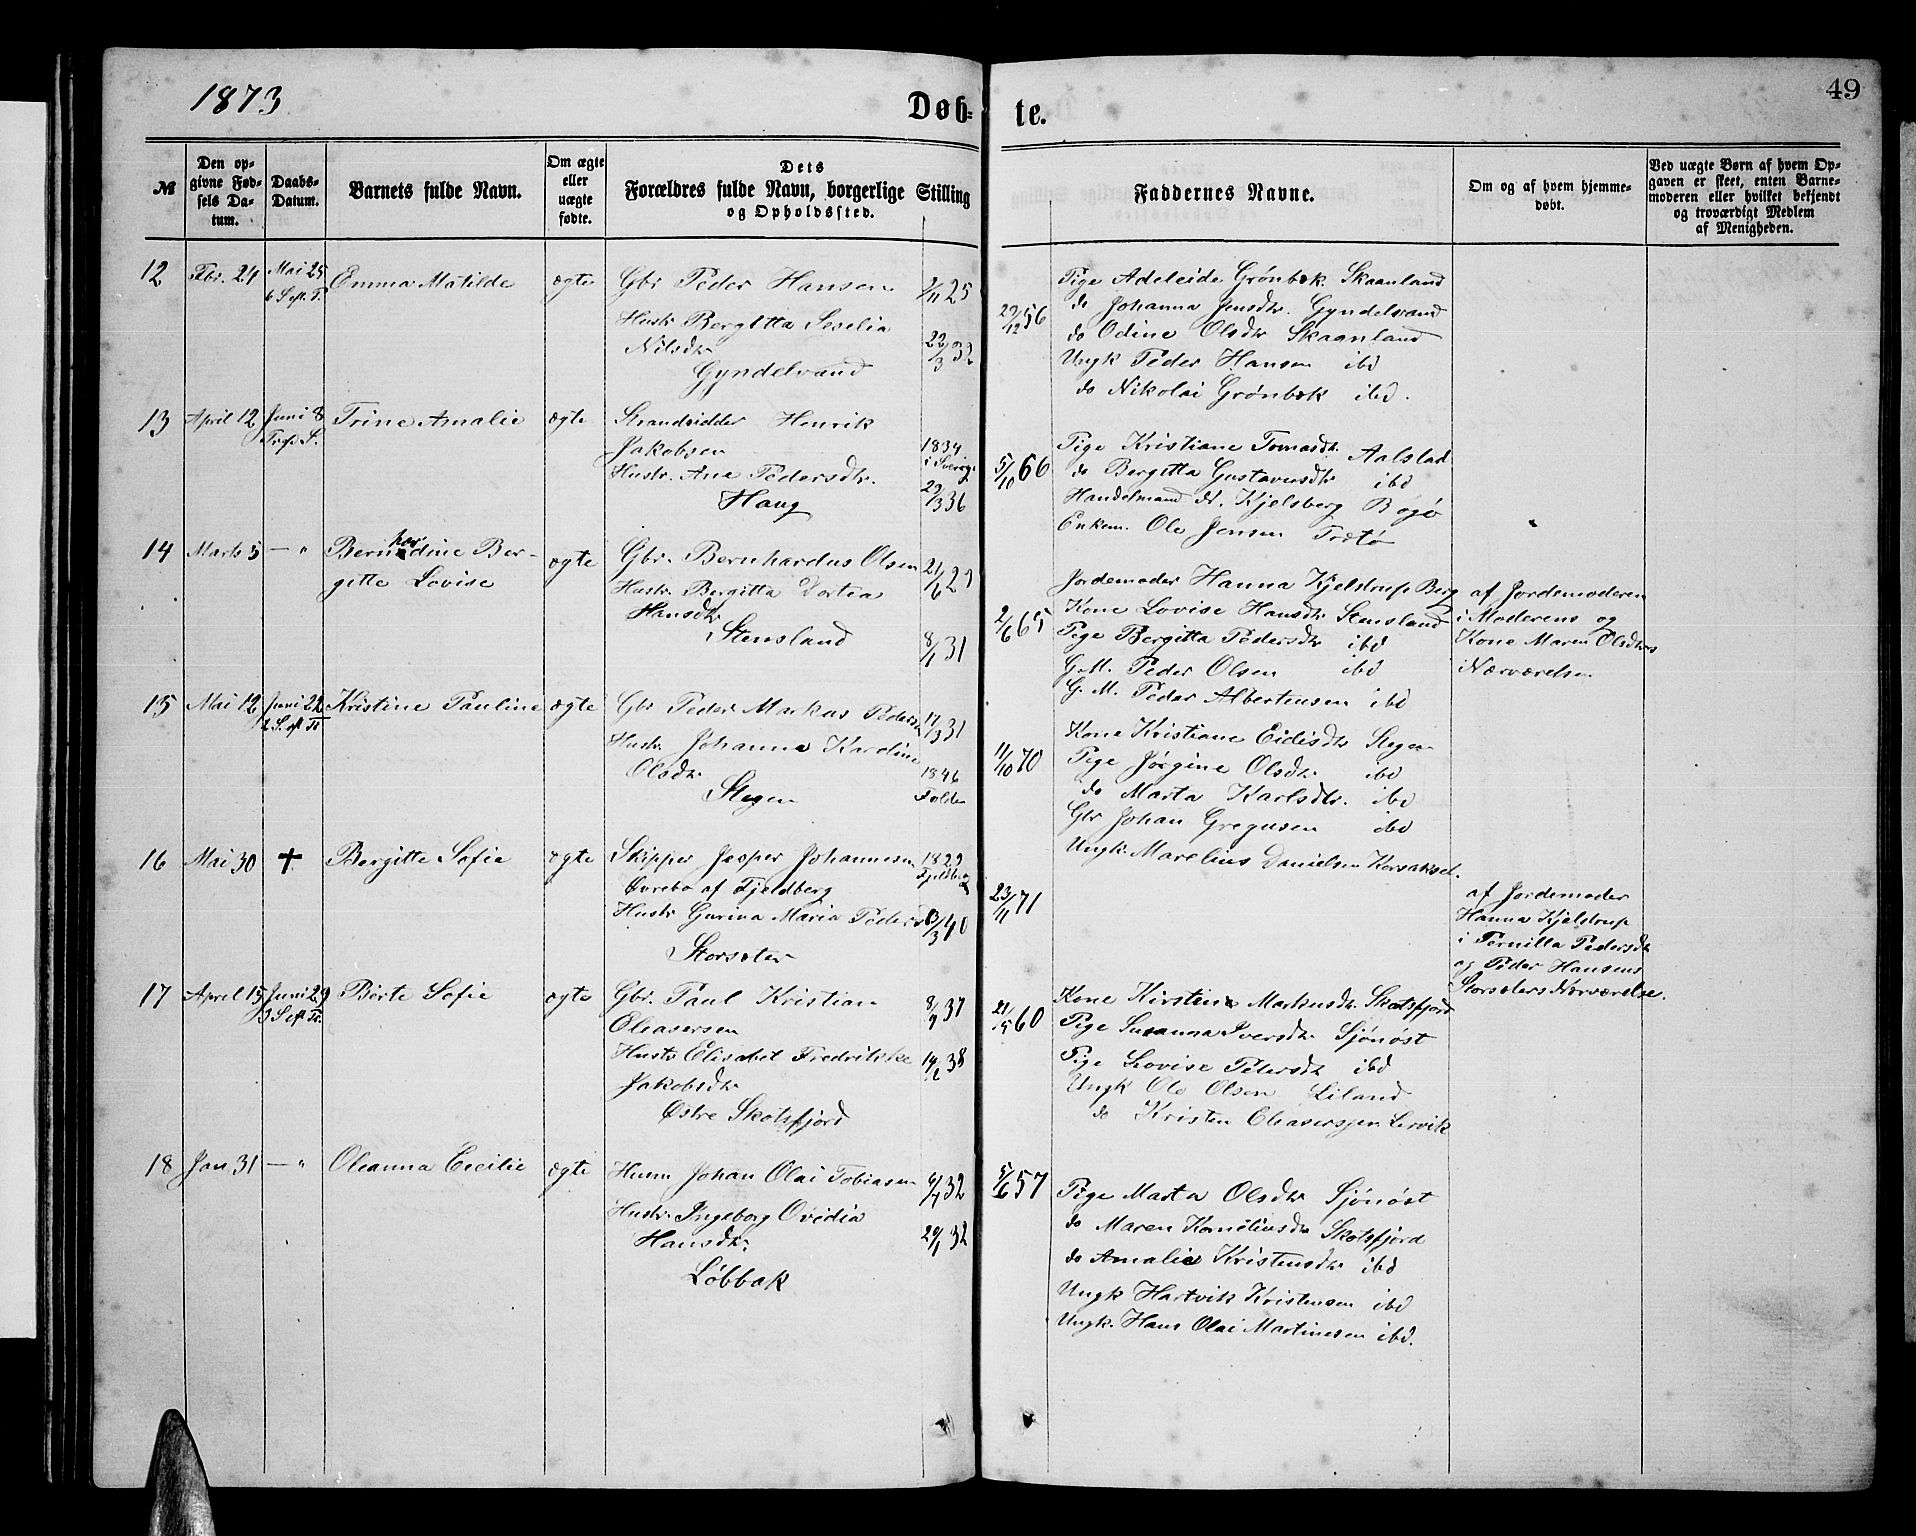 1873
Døb-
te.
49
№
Den op-
givne Fød-
sels Da-
tum.
Daabs-
Datum.
Barnets fulde Navn.
Om ægte
eller
uægte
fødte.
Dets
Forældres fulde Navn, borgerlige Stilling
og Opholdssted.
Faddernes Navne.
Om og af hvem hjemme-
døbt.
Ved uægte Børn af hvem Op-
gaven er skeet, enten Barne-
moderen eller hvilket bekjendt
og troværdigt Medlem
af Menigheden.
12 Fbr. 24 Mai 25
6 S. eft. P.
Emma Matilde
ægte
Gbr Peder Hansen
Hustr Bergitta Seselia
Nilsdtr
Gyndelvand
2/11 25
22/3 32
29/12 56
Pige Adeleide Grønbæk Skaanland
do Johanna Jensdtr. Gyndelvand
do Odine Olsdtr Skaanland
Ungk Peder Hansen ibd
do Nikolai Grønbæk ibd.
13 April 12 Juni 8
Tref. S.
Trine Amalie
ægte
Strandsidder Henrik
Jakobsen
Hustr. Ane Pedersdtr.
Haug
1834
i Sverige
29/3 36
5/10 66
Pige Kristiane Tomasdtr. Aalstad
do Bergitta Gustavusdtr ibd
Handelsmand N. Kjelsberg Bogø
Enkem. Ole Jensen Trøtø
14 Marts 5 — "
Bernhardine Ber-
gitte Lovise
ægte
Gbr. Bernhardus Olsen
Hustr. Bergitta Dortea
Hansdtr
Stensland
21/6 29
8/1 31
2/6 65
Jordemoder Hanna Kjelstrup Berg
Kone Lovise Hansdtr Stensland
Pige Bergitta Pedersdtr ibd
G. M. Peder Olsen ibd
G. M. Peder Albertensen ibd
af Jordemoderen
i Moderens og
Kone Maren Olsdtrs
Nærværelse
15 Mai 12 Juni 22
2 S. eft Tr
Kristine Pauline
ægte
Gbr Peder Markus Peders
Hustr Johanna Kardine
Olsdtr
Stegen
17/3 31
1846
Folden
11/10 70
Kone Kristiane Eidisdtr Stegen
Pige Jørgine Olsdtr ibd
do Marta Karlsdtr. ibd
Gbr Johan Gregusen ibd
Ungk. Marelius Danielsen Korsaksel.
16 Mai 30 +
Bergitte Sofie
ægte
Skipper Jesper Johannesen
Øvrebø af Fjeldberg
Hustr Gurina Maria Peders
Storsæter
1829
Fjeldberg
13/3 40
23/11 71
af Jordemoder
Hanna Kjelstrup
i Pernilla Pedersdtr
og Peder Hansens
Storsæters Nærværelse.
17 April 15 Juni 29
3 S eft Tr.
Berte Sofie
ægte
Gbr. Paul Kristian
Eleasersen
Hustr Elisabet Fredrikke
Jakobsdtr
Østre Skotsfjord
8/9 37
14/2 38
21/5 60
Kone Kirstine Markusdtr. Skotsfjord
Pige Susanna Iversdtr Sjønøst
Pige Lovise Petersdtr ibd
Ungk Ole Olsen Liland
do Kristen Eleasersen Lervik
18 Jan 31 — "
Oleanna Cecilie
ægte
Husm Johan Olai Tobiasen
Hustr. Ingeborg Ovedia
Hansdtr.
Løbbak
6/7 32
29/1 32
5/6 57
Pige Marta Olsdtr Sjønøst
do Maren Korneliusdtr Skotsfjord
do Amalie Kristensdtr ibd
Ungk Hartvik Kristensen ibd
Ungk. Hans Olai Martinesen ibd.